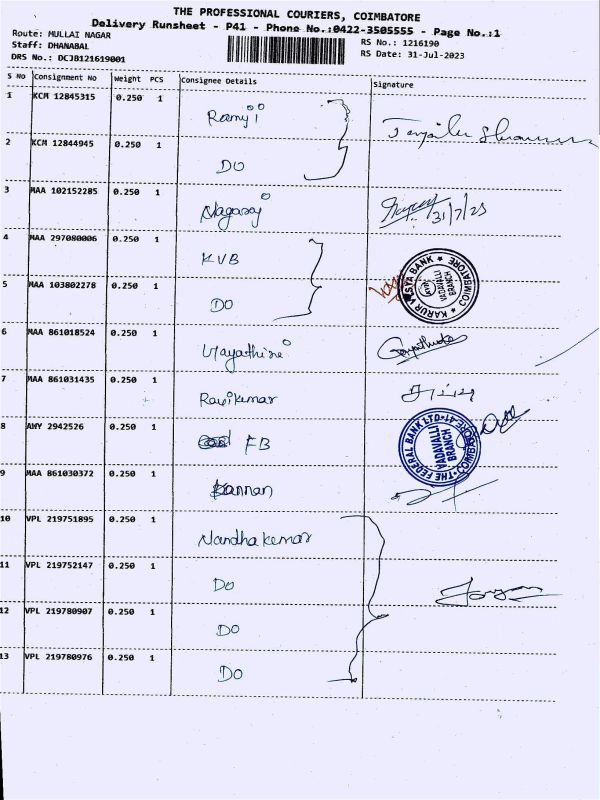 THE PROFESSIONAL COURIERS, COIMBATORE
Delivery Runsheet - P41 - Phone No.:0422-3505555 - Page No.:1
Route: MULLAI NAGAR
Staff: DHANABAL
DRS No.: DCJB121619001
RS No.: 1216190
RS Date: 31-Jul-2023
S No Consignment No Weight PCS Consignee Details Signature
1 KCM 12845315 0.250 1 Ramji
2 KCM 12844945 0.250 1 DO
3 MAA 102152285 0.250 1 Nagaraj 31/7/23
4 MAA 297080006 0.250 1 KVB
KARUR VYSYA BANK * COIMBATORE *
VADAVALLI
BRANCH
5 MAA 103802278 0.250 1 DO
6 MAA 861018524 0.250 1 Gayathiri
7 MAA 861031435 0.250 1 Ravikumar
8 AMY 2942526 0.250 1 FB
THE FEDERAL BANK LTD. COIMBATORE-41
VADAVALLI
BRANCH
9 MAA 861030372 0.250 1 Kannan
10 VPL 219751895 0.250 1 Nandhakumar
11 VPL 219752147 0.250 1 DO
12 VPL 219780907 0.250 1 DO
13 VPL 219780976 0.250 1 DO